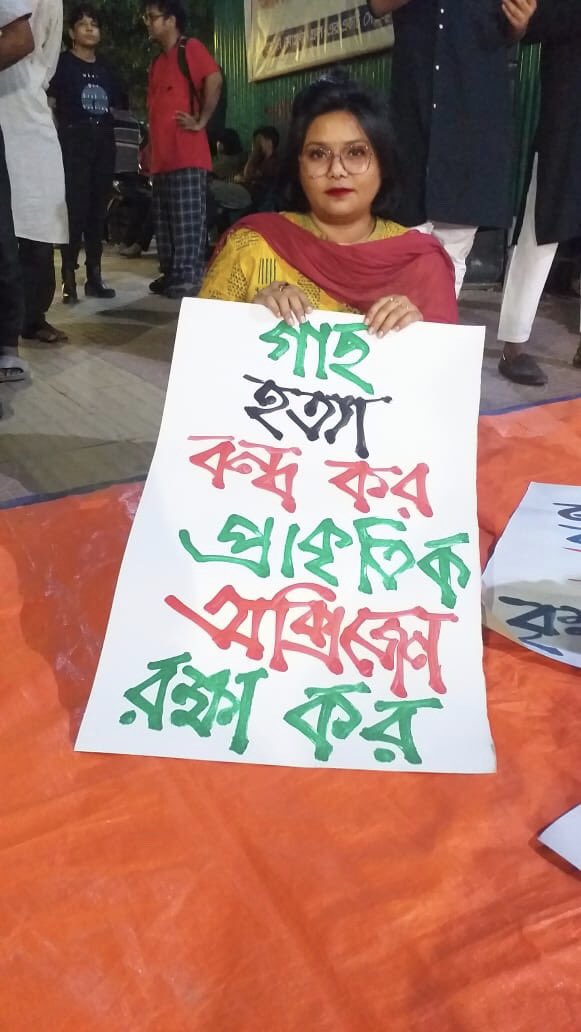 গাছ
হত্যা
বন্ধ কর
প্রাকৃতিক
অক্সিজেন
রক্ষা কর